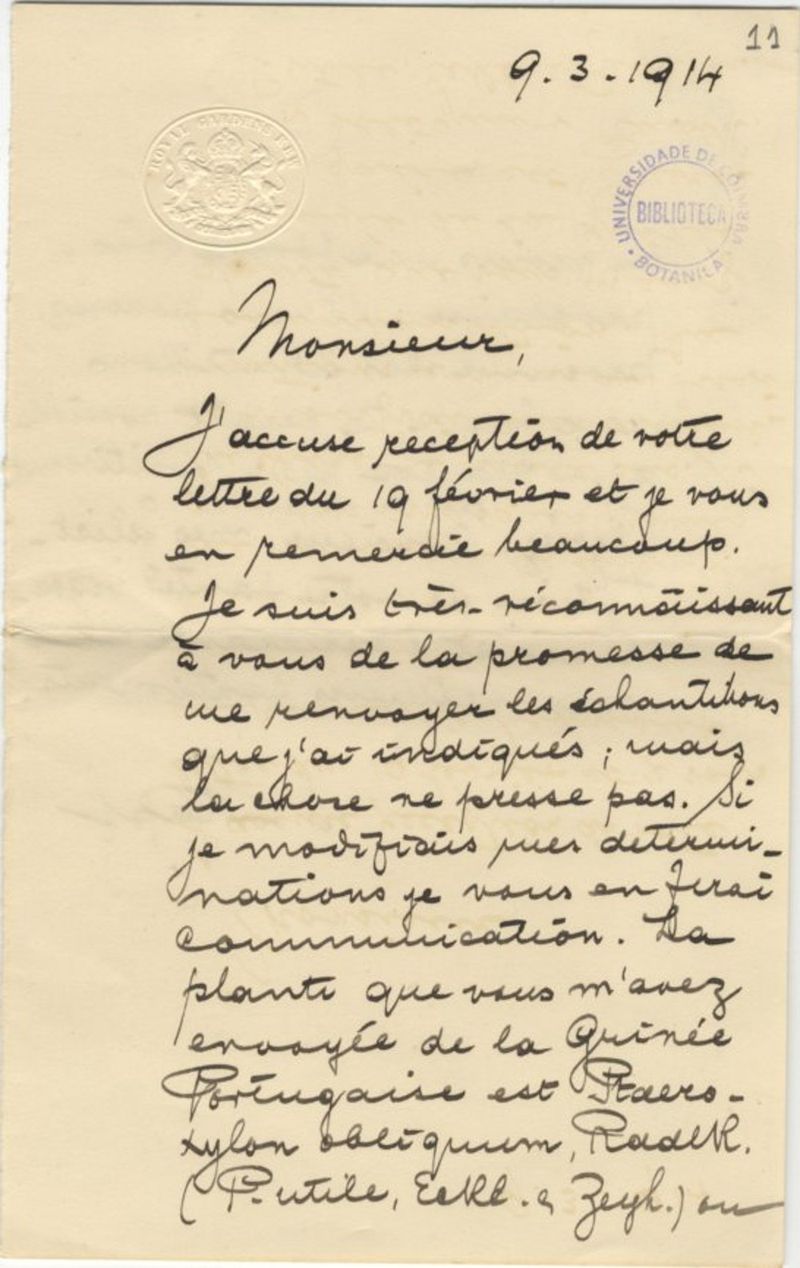 11
9.3.1914
ROYAL GARDENS KEW
UNIVERSIDADE DE COIMBRA
BIBLIOTECA
BOTANICA
Monsieur,
J'accuse reception de votre
lettre du 19 février et je vous
en remercie beaucoup.
Je suis très-réconnaissant
à vous de la promesse de
me renvoyer les échantillons
que j'ai indiqués; mais
la chose ne presse pas. Si
je modifiais mes determi-
nations je vous en ferai
communication. La
plante que vous m'avez
envoyée de la Guinée
Portugaise est Ptaero-
xylon obliquum, Radlk.
(P. utile, Eckl. & Zeyh.) ou